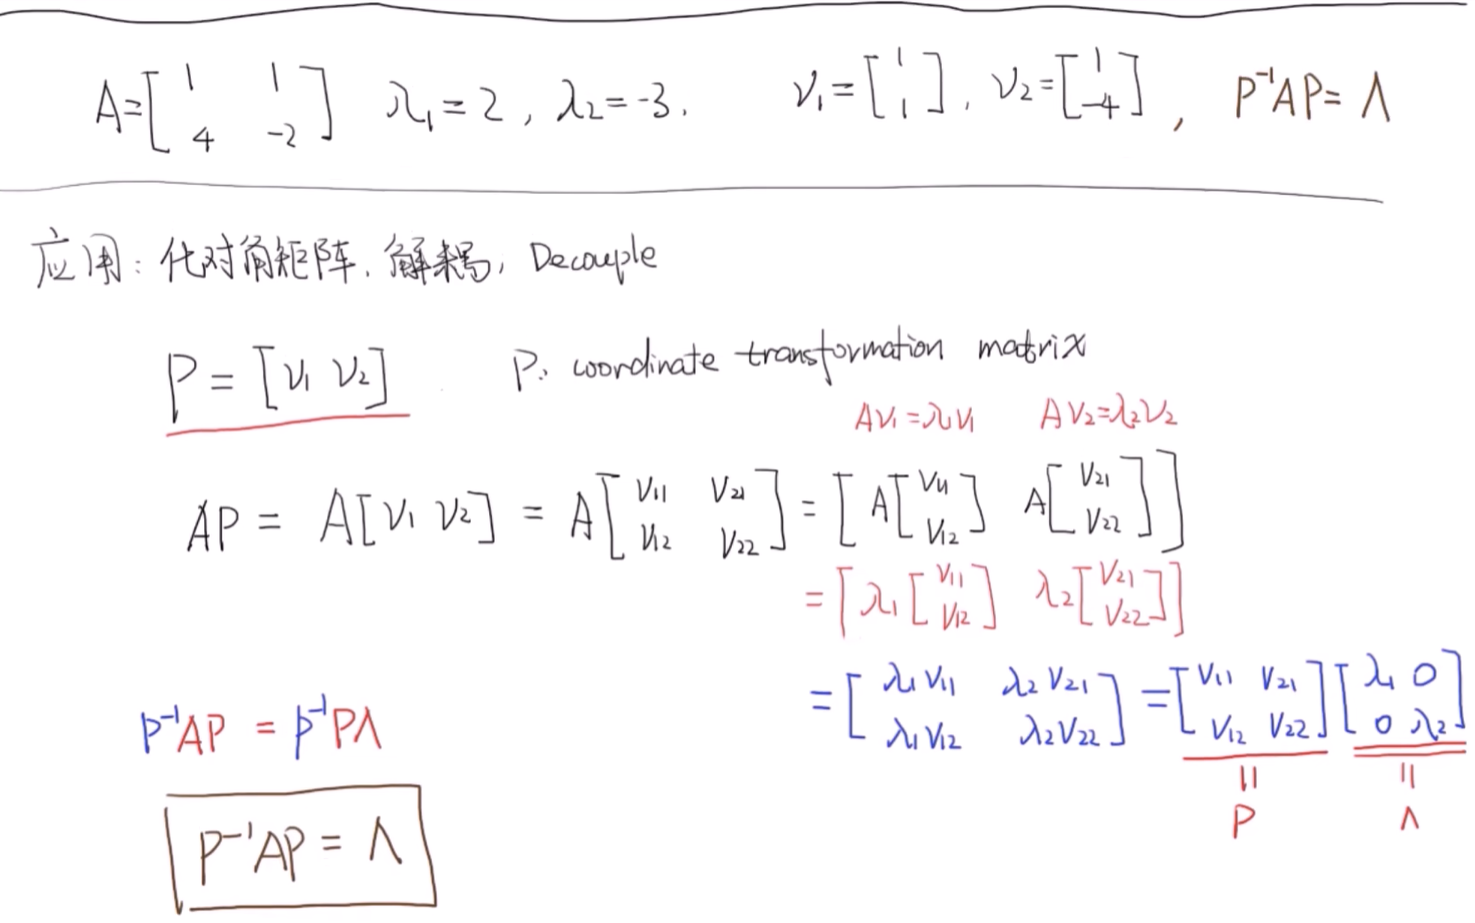 A = [1 1; 4 -2] λ₁ = 2, λ₂ = -3. v₁ = [1; 1], v₂ = [1; -4], P⁻¹AP = Λ
应用: 化对角矩阵. 解耦, Decouple
P = [v₁ v₂] P: coordinate transformation matrix
Av₁ = λ₁v₁ Av₂ = λ₂v₂
AP = A[v₁ v₂] = A[v₁₁ v₂₁; v₁₂ v₂₂] = [A[v₁₁; v₁₂] A[v₂₁; v₂₂]]
= [λ₁[v₁₁; v₁₂] λ₂[v₂₁; v₂₂]]
= [λ₁v₁₁ λ₂v₂₁; λ₁v₁₂ λ₂v₂₂] = [v₁₁ v₂₁; v₁₂ v₂₂] [λ₁ 0; 0 λ₂]
= P = Λ
P⁻¹AP = P⁻¹PΛ
P⁻¹AP = Λ